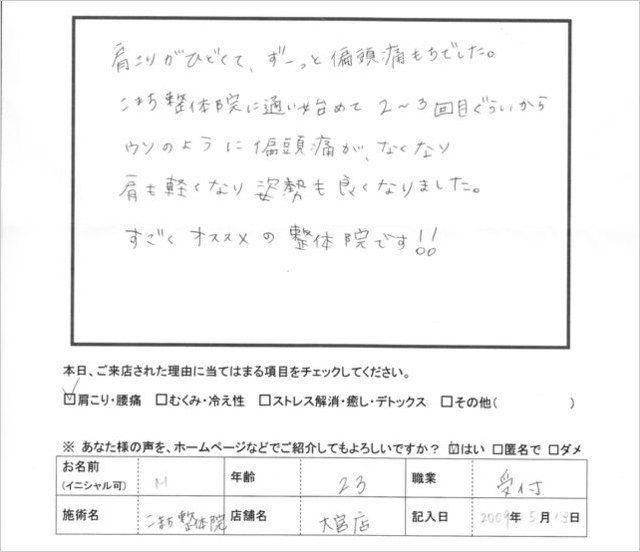 肩こりがひどくて、ずーっと偏頭痛もちでした。
こまち整体院に通い始めて2～3回目ぐらいから
ウソのように偏頭痛が、なくなり
肩も軽くなり姿勢も良くなりました。
すごくオススメの整体院です!!
本日、ご来店された理由に当てはまる項目をチェックしてください。
☑肩こり・腰痛 □むくみ・冷え性 □ストレス解消・癒し・デトックス □その他( )
※ あなた様の声を、ホームページなどでご紹介してもよろしいですか？ ☑はい □匿名で □ダメ
お名前(イニシャル可) M 年齢 23 職業 受付
施術名 こまち整体院 店舗名 大宮店 記入日 2009年5月13日